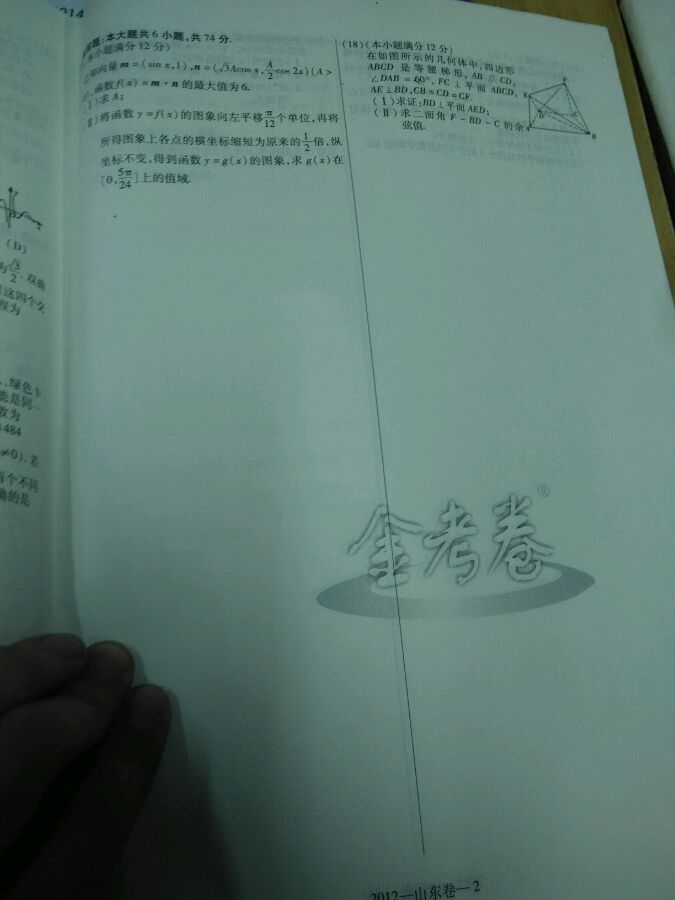 014
答题:本大题共6小题,共74分.
本小题满分12分)
已知向量m=(sin x,1),n=(√3Acos x,A/2cos 2x)(A>
,函数f(x)=m·n的最大值为6.
(Ⅰ)求A;
(Ⅱ)将函数y=f(x)的图象向左平移π/12个单位,再将
所得图象上各点的横坐标缩短为原来的1/2倍,纵
坐标不变,得到函数y=g(x)的图象,求g(x)在
[0,5π/24]上的值域.
(18)(本小题满分12分)
在如图所示的几何体中,四边形
ABCD是等腰梯形,AB∥CD,
∠DAB=60°,FC⊥平面ABCD,
AE⊥BD,CB=CD=CF.
(Ⅰ)求证:BD⊥平面AED;
(Ⅱ)求二面角F-BD-C的余
弦值.
F
E
D
C
A
B
(D)
√3/2.双曲
这四个交
程为
,绿色卡
能是同一
数为
484
≠0).若
两个不同
确的是
金考卷®
2012—山东卷—2